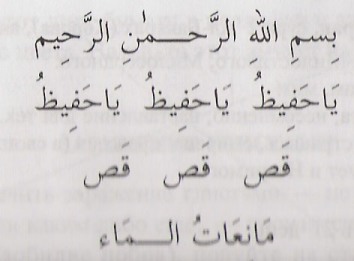 بِسمِ اللهِ الرَّحمٰنِ الرَّحِيمِ
يَاحَفِيظُ يَاحَفِيظُ يَاحَفِيظُ
قص قص قص
مَانِعَاتُ السمَاء